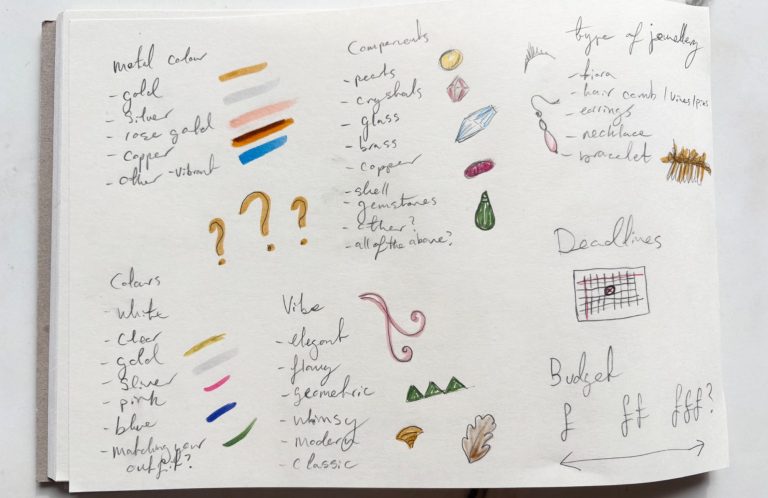 Metal colour
- gold
- silver
- rose gold
- copper
- other - vibrant
? ? ?
Components
- pearls
- crystals
- glass
- brass
- copper
- shell
- gemstones
- other?
- all of the above?
type of jewellery
- tiara
- hair comb / vines / pins
- earrings
- necklace
- bracelet
Colours
- white
- clear
- gold
- silver
- pink
- blue
- matching your
outfit?
Vibe
- elegant
- flowy
- geometric
- whimsy
- modern
- classic
Deadlines
Budget
£ ££ £££?